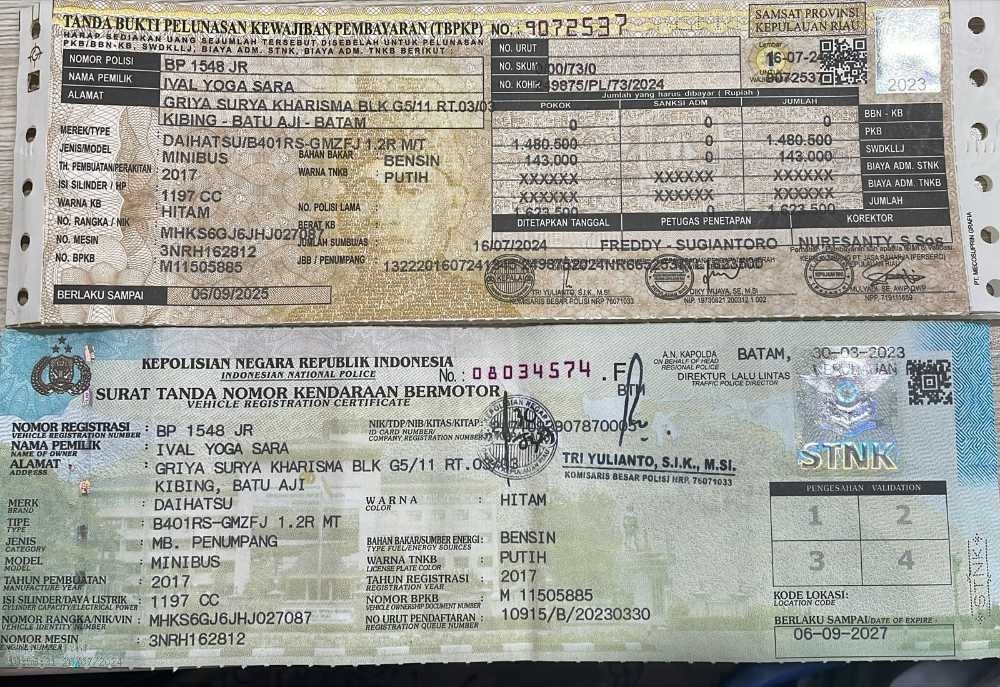 TANDA BUKTI PELUNASAN KEWAJIBAN PEMBAYARAN (TBPKP) NO. 9072537
HARAP SEDIAKAN UANG SEJUMLAH TERSEBUT DISEBELAH UNTUK PELUNASAN
PKB/BBN-KB, SWDKLLJ, BIAYA ADM. STNK, BIAYA ADM. TNKB BERIKUT :
SAMSAT PROVINSI
KEPULAUAN RIAU
2023
NOMOR POLISI BP 1548 JR
NAMA PEMILIK IVAL YOGA SARA
ALAMAT GRIYA SURYA KHARISMA BLK G5/11 RT.03/03
KIBING - BATU AJI - BATAM
MEREK/TYPE DAIHATSU/B401RS-GMZFJ 1.2R M/T
JENIS/MODEL MINIBUS
BAHAN BAKAR : BENSIN
TH. PEMBUATAN/PERAKITAN 2017
WARNA TNKB : PUTIH
ISI SILINDER / HP 1197 CC
WARNA KB HITAM
NO. POLISI LAMA
NO. RANGKA / NIK MHKS6GJ6JHJ027087
BERAT KB
JUMLAH SUMBUAS
NO. MESIN 3NRH162812
JBB / PENUMPANG
NO. BPKB M11505885
BERLAKU SAMPAI 06/09/2025
NO. URUT
NO. SKUM 00/73/0
NO. KOHIR 9875/PL/73/2024
Lembar
1
6-07-24
Jumlah yang harus dibayar ( Rupiah )
POKOK SANKSI ADM JUMLAH
0 0 0 BBN - KB
1.480.500 0 1.480.500 PKB
143.000 0 143.000 SWDKLLJ
XXXXXX XXXXXX XXXXXX BIAYA ADM. STNK
XXXXXX XXXXXX XXXXXX BIAYA ADM. TNKB
1.623.500 0 1.623.500 JUMLAH
DITETAPKAN TANGGAL PETUGAS PENETAPAN KOREKTOR
16/07/2024 FREDDY - SUGIANTORO NURESANTY S.Sos
TRI YULIANTO, S.I.K., M.SI
KOMISARIS BESAR POLISI NRP 76071033
PT. JASA RAHARJA (PERSERO)
PT. MECOSUPRIN GRAFIA
KEPOLISIAN NEGARA REPUBLIK INDONESIA
INDONESIAN NATIONAL POLICE
No.: 08034574 .F
SURAT TANDA NOMOR KENDARAAN BERMOTOR
VEHICLE REGISTRATION CERTIFICATE
A.N. KAPOLDA
ON BEHALF OF HEAD
REGIONAL POLICE
BATAM, 30-03-2023
DIREKTUR LALU LINTAS
TRAFFIC POLICE DIRECTOR
STNK
NOMOR REGISTRASI : BP 1548 JR
VEHICLE REGISTRATION NUMBER
NIK/TDP/NIB/KITAS/KITAP:
ID CARD NUMBER/
COMPANY REGISTRATION NUMBER
NAMA PEMILIK : IVAL YOGA SARA
NAME OF OWNER
ALAMAT : GRIYA SURYA KHARISMA BLK G5/11 RT.03/03
ADDRESS
KIBING, BATU AJI
TRI YULIANTO, S.I.K., M.SI.
KOMISARIS BESAR POLISI NRP. 76071033
MERK : DAIHATSU
BRAND
WARNA : HITAM
COLOR
TIPE : B401RS-GMZFJ 1.2R MT
TYPE
JENIS : MB. PENUMPANG
CATEGORY
BAHAN BAKAR/SUMBER ENERGI : BENSIN
TYPE FUEL/ENERGY SOURCES
MODEL : MINIBUS
MODEL
WARNA TNKB : PUTIH
LICENSE PLATE COLOR
TAHUN PEMBUATAN : 2017
MANUFACTURE YEAR
TAHUN REGISTRASI : 2017
REGISTRATION YEAR
ISI SILINDER/DAYA LISTRIK : 1197 CC
CYLINDER CAPACITY/ELECTRICAL POWER
NOMOR BPKB : M 11505885
VEHICLE OWNERSHIP DOCUMENT NUMBER
NOMOR RANGKA/NIK/VIN : MHKS6GJ6JHJ027087
VEHICLE IDENTITY NUMBER
NO URUT PENDAFTARAN : 10915/B/20230330
REGISTRATION QUEUE NUMBER
NOMOR MESIN : 3NRH162812
ENGINE NUMBER
PENGESAHAN VALIDATION
1 2
3 4
KODE LOKASI:
LOCATION CODE
BERLAKU SAMPAI/DATE OF EXPIRE :
06-09-2027
STNK